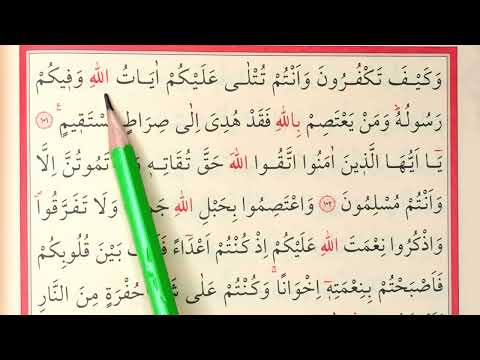 وَكَيْفَ تَكْفُرُونَ وَاَنْتُمْ تُتْلٰى عَلَيْكُمْ اٰيَاتُ اللّٰهِ وَفٖيكُمْ
رَسُولُهُۜ وَمَنْ يَعْتَصِمْ بِاللّٰهِ فَقَدْ هُدِيَ اِلٰى صِرَاطٍ مُسْتَقٖيمٍۚ ١٠١
يَٓا اَيُّهَا الَّذٖينَ اٰمَنُوا اتَّقُوا اللّٰهَ حَقَّ تُقَاتِهٖ تَمُوتُنَّ اِلَّا
وَاَنْتُمْ مُسْلِمُونَ ١٠٢ وَاعْتَصِمُوا بِحَبْلِ اللّٰهِ وَلَا تَفَرَّقُواۖ
وَاذْكُرُوا نِعْمَتَ اللّٰهِ عَلَيْكُمْ اِذْ كُنْتُمْ اَعْدَٓاءً بَيْنَ قُلُوبِكُمْ
فَاَصْبَحْتُمْ بِنِعْمَتِهٖٓ اِخْوَانًاۚ وَكُنْتُمْ عَلٰى حُفْرَةٍ مِنَ النَّارِ